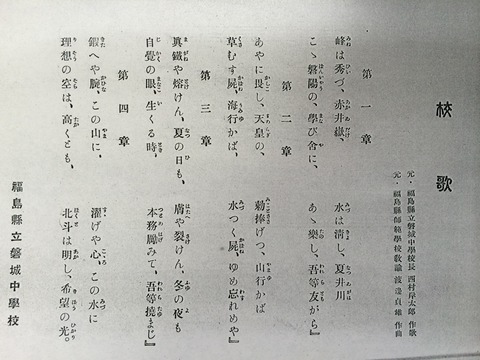 校歌
元・福島縣立磐城中學校長 西村岸太郎 作歌
元・福島縣師範學校敎諭 渡邊貞雄 作曲
第一章
峰は秀づ、赤井嶽、
水は淸し、夏井川
こゝ磐陽の、學び舍に、
あゝ樂し、吾等友がら』
第二章
あやに畏し、天皇の、
勅捧げつ、山行かば
草むす屍、海行かば、
水つく屍、ゆめ忘れめや』
第三章
眞鐵や熔けん、夏の日も、
膚や裂けん、冬の夜も
自覺の眼、生くる時、
本務顧みて、吾等撓まじ』
第四章
鍛へや腕、この山に、
濯げや心、この水に
理想の空は、高くとも、
北斗は明し、希望の光。
福島縣立磐城中學校